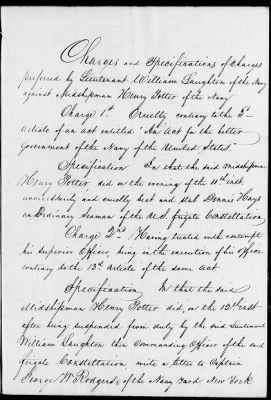 Charges and Specifications of charges
preferred by Lieutenant William Laughton of the Navy
against Midshipman Henry Potter of the Navy
Charge 1st. Cruelty contrary to the 3d
article of an act entitled "An Act for the better
government of the Navy of the United States."
Specification. In that the said midshipman
Henry Potter, did on the evening of the 11th inst.
unnecessarily and cruelly beat and stab Dennis Hays
an Ordinary Seaman of the U.S. frigate Constellation.
Charge 2nd. Having treated with contempt
his superior Officer, being in the execution of his office
contrary to the 13th article of the same act
Specification In that the said
Midshipman Henry Potter did, on the 12th inst.
after being suspended from duty by the said Lieutenant
William Laughton then Commanding Officer of the said
frigate Constellation write a letter to Captain
George W Rodgers, of the Navy Yard New York